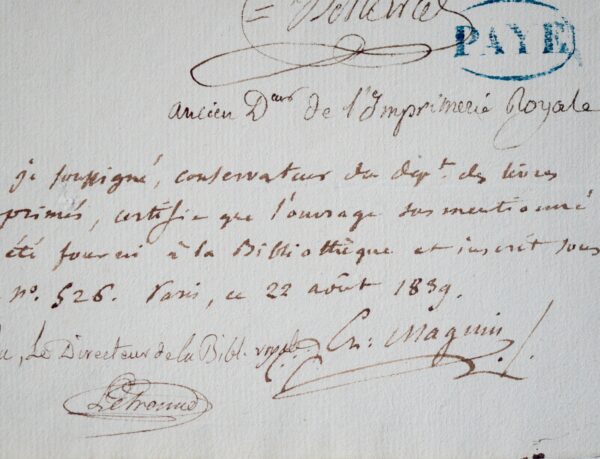 PAYE
ancien Deur de l'Imprimerie Royale
je soussigné, conservateur du dépt. des livres
primés, certifie que l'ouvrage susmentionné
été fourni à la Bibliothèque et inscrit sous
no. 526. Paris, ce 22 août 1839.
Le Directeur de la Bibl. royale
Ch: Magnin
Letronne